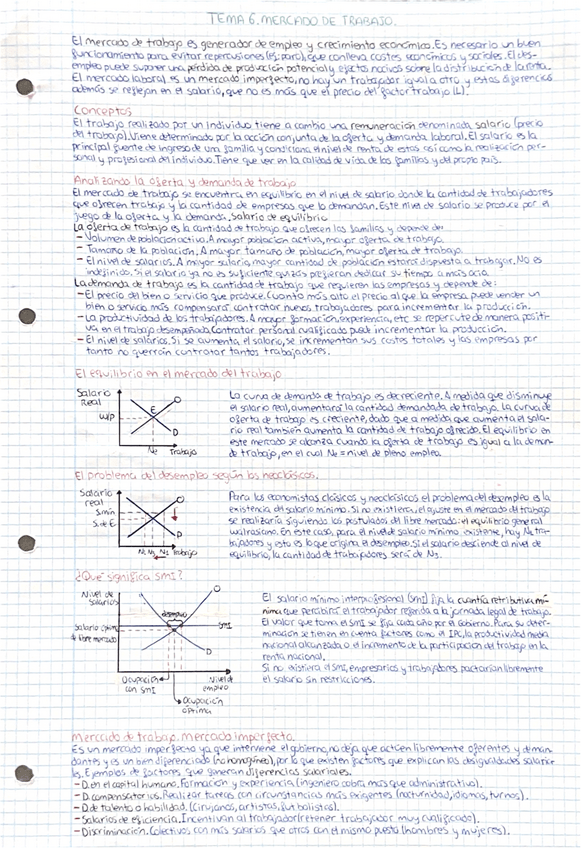 TEMA 6. MERCADO DE TRABAJO.
El mercado de trabajo es generador de empleo y crecimiento económico. Es necesario un buen
funcionamiento para evitar repercusiones (ej: paro), que conlleva costes económicos y sociales. El des-
empleo puede suponer una pérdida de producción potencial y efectos nocivos sobre la distribución de la renta.
El mercado laboral es un mercado imperfecto, no hay un trabajador igual a otro y estas diferencias
además se reflejan en el salario, que no es más que el precio del factor trabajo (L).
Conceptos
El trabajo realizado por un individuo tiene a cambio una remuneración denominada salario (precio
del trabajo). Viene determinado por la acción conjunta de la oferta y demanda laboral. El salario es la
principal fuente de ingreso de una familia y condiciona el nivel de renta de estas así como la realización per-
sonal y profesional del individuo. Tiene que ver en la calidad de vida de las familias y del propio país.
Analizando la oferta y demanda de trabajo
El mercado de trabajo se encuentra en equilibrio en el nivel de salario donde la cantidad de trabajadores
que ofrecen trabajo y la cantidad de empresas que lo demandan. Este nivel de salario se produce por el
juego de la oferta y la demanda, salario de equilibrio
La oferta de trabajo es la cantidad de trabajo que ofrecen las familias y depende de:
- Volumen de poblacion activa. A mayor población activa, mayor oferta de trabajo.
- Tamaño de la población. A mayor tamaño de población, mayor oferta de trabajo.
- El nivel de salarios. A mayor salario, mayor cantidad de población estará dispuesta a trabajar. No es
indefinido. Si el salario ya no es suficiente quizás prefieran dedicar su tiempo a más ocio.
La demanda de trabajo es la cantidad de trabajo que requieren las empresas y depende de:
- El precio del bien o servicio que produce. Cuanto más alto el precio al que la empresa puede vender un
bien o servicio más compensará contratar nuevos trabajadores para incrementar la producción.
- La productividad de los trabajadores. A mayor formación, experiencia, etc se repercute de manera positi-
va en el trabajo desempeñado. Contratar personal cualificado puede incrementar la producción.
- El nivel de salarios. Si se aumenta el salario, se incrementan sus costes totales y las empresas por
tanto no querrán contratar tantos trabajadores.
El equilibrio en el mercado del trabajo
Salario
Real
W/P
E
O
D
Ne
Trabajo
La curva de demanda de trabajo es decreciente. A medida que disminuye
el salario real, aumentará la cantidad demandada de trabajo. La curva de
oferta de trabajo es creciente, dado que a medida que aumenta el sala-
rio real también aumenta la cantidad de trabajo ofrecido. El equilibrio en
este mercado se alcanza cuando la oferta de trabajo es igual a la deman-
da de trabajo, en el cual Ne = nivel de pleno empleo.
El problema del desempleo según los neoclásicos.
Salario
real
S.mín
S.de E
O
D
Trabajo
Para los economistas clásicos y neoclásicos el problema del desempleo es la
existencia del salario mínimo. Si no existiera, el ajuste en el mercado del trabajo
se realizaría siguiendo los postulados del libre mercado: el equilibrio general
walrasiano. En este caso, para el nivel de salario mínimo existente, hay tra-
bajadores y esto es lo que origina el desempleo. Si el salario desciende al nivel de
equilibrio, la cantidad de trabajadores será de
¿Qué significa smi?
Nivel de
salarios
Salario óptimo
libre mercado
desempleo
O
SMI
D
Ocupación
con SMI
Nivel de
empleo
Ocupación
óptima
El salario mínimo interprofesional (smi) fija la cuantía retributiva mí-
nima que percibirá el trabajador referida a la jornada legal de trabajo.
El valor que toma el SMI se fija cada año por el Gobierno. Para su deter-
minación se tienen en cuenta factores como el IPC, la productividad media
nacional alcanzada o el incremento de la participación del trabajo en la
renta nacional.
Si no existiera el SMI, empresarios y trabajadores pactarían libremente
el salario sin restricciones.
Mercado de trabajo. Mercado imperfecto.
Es un mercado imperfecto ya que interviene el gobierno, no deja que actúen libremente oferentes y deman
dantes y es un bien diferenciado (no homogéneo), por lo que existen factores que explican las desigualdades salaria-
les. Ejemplos de factores que generan diferencias salariales.
- D. en el capital humano. Formación y experiencia (ingeniero cobra más que administrativo).
- D. compensatorias. Realizar tareas con circunstancias más exigentes (nocturnidad, idiomas, turnos).
- D. de talento o habilidad. (Cirujanos, artistas, futbolistas).
- Salarios de eficiencia. Incentivan al trabajador (retener trabajador muy cualificado).
- Discriminación. Colectivos con más salarios que otros con el mismo puesto (hombres y mujeres).